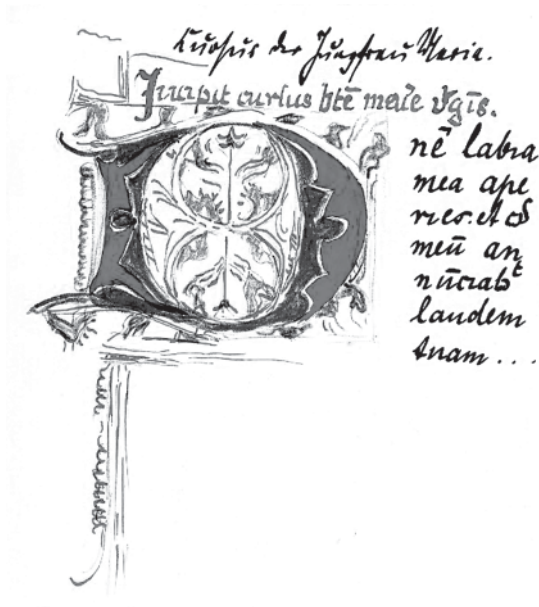 Cursus der Jungfrau Maria.
Incipit cursus btē marie v̄gīs.
D nē labia
mea ape
ries. et os
meū an
nūciabᵗ
laudem
tuam . . .